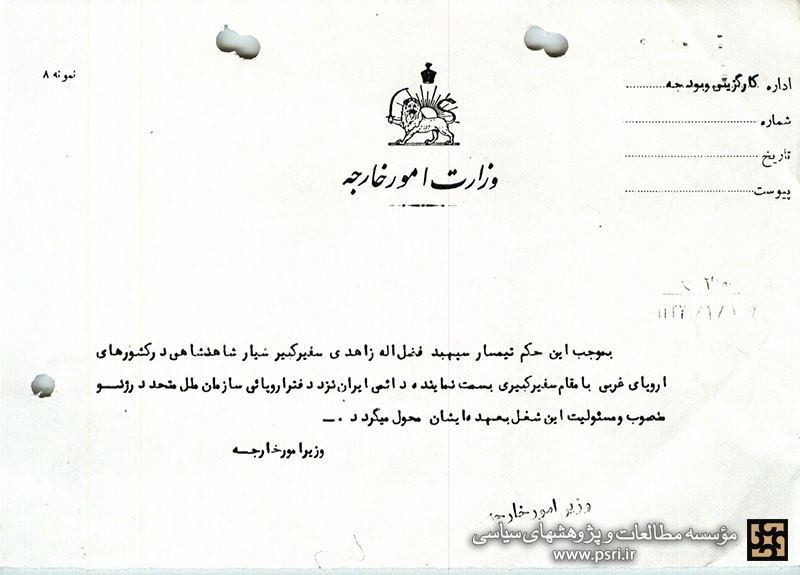 نمونه ۸
اداره کارگزینی وبودجه
شماره
تاریخ
پیوست
وزارت امور خارجه
بموجب این حکم تیمسار سپهبد فضل اله زاهدی سفیرکبیر سیار شاهنشاهی درکشورهای
اروپای غربی با مقام سفیرکبیری بسمت نماینده دائمی ایران نزد دفتراروپائی سازمان ملل متحد درژنو
منصوب ومسئولیت این شغل بعهده ایشان محول میگردد .ــ
وزیرامورخارجه
وزیر امور خارجه
مؤسسه مطالعات و پژوهشهای سیاسی
www.psri.ir